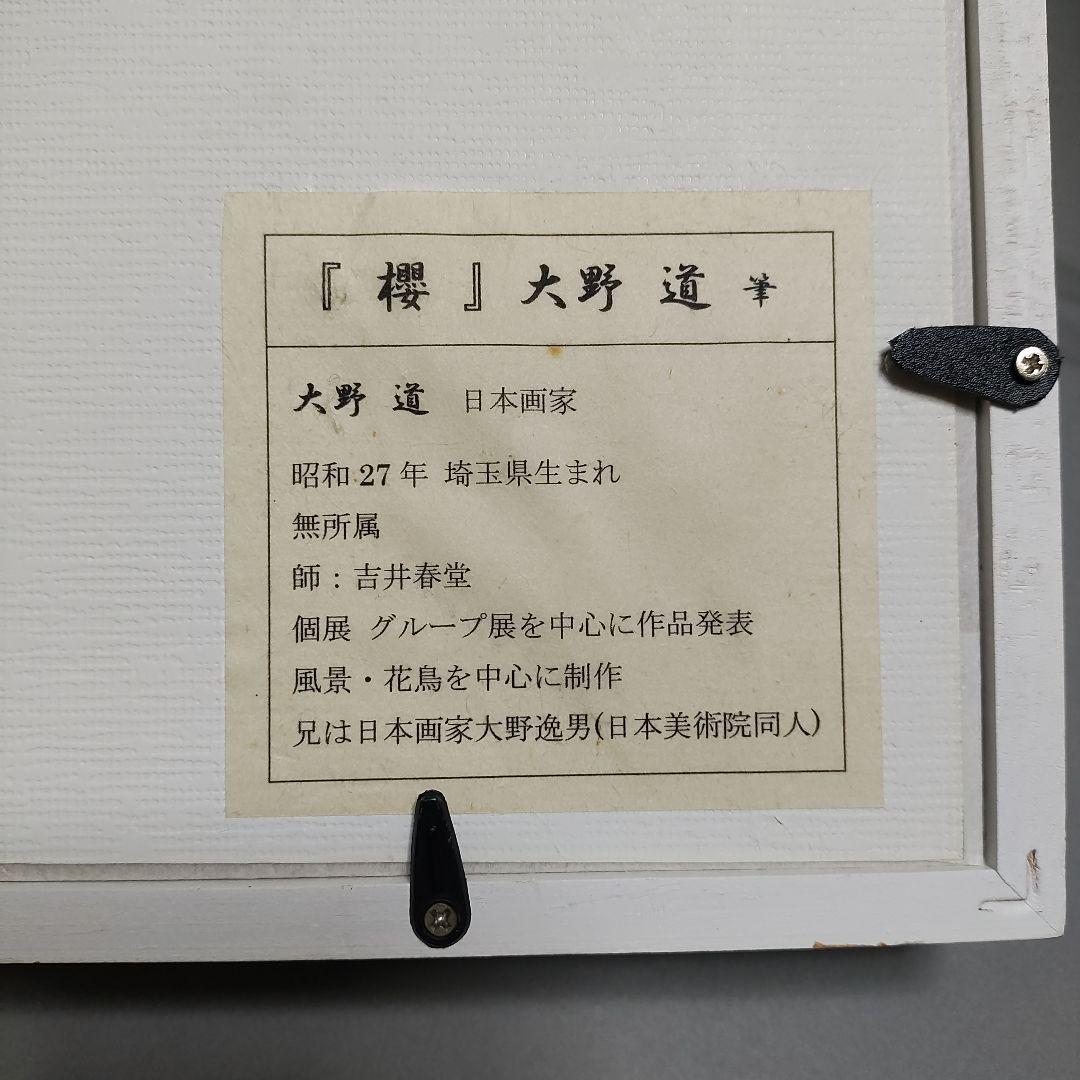 『 櫻 』 大野 道 筆
大野 道 日本画家
昭和 27 年 埼玉県生まれ
無所属
師 : 吉井春堂
個展 グループ展を中心に作品発表
風景・花鳥を中心に制作
兄は日本画家大野逸男(日本美術院同人)